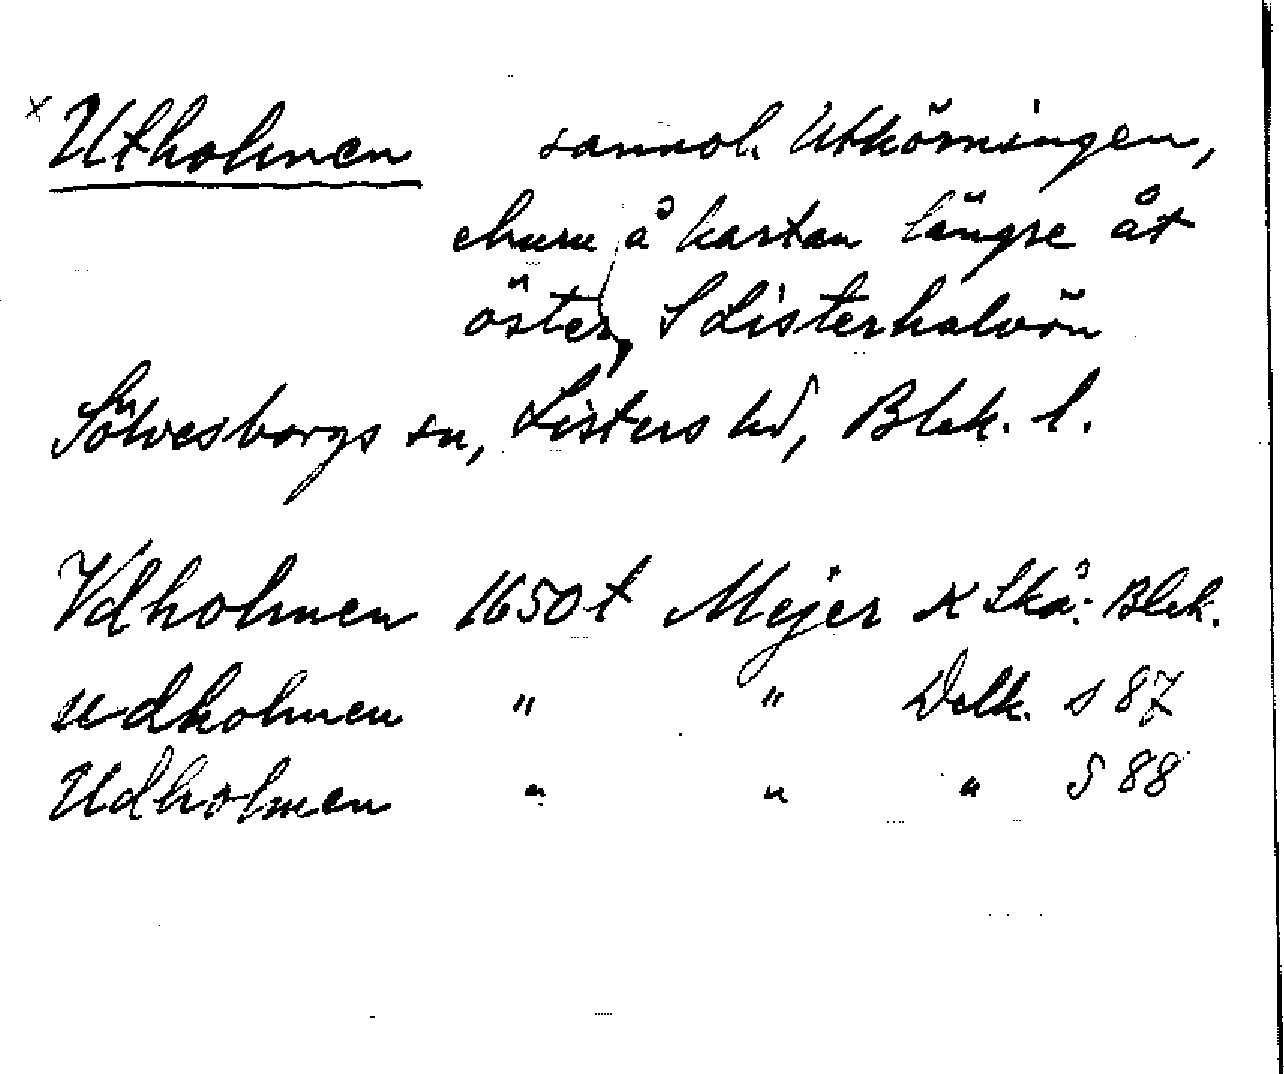 x Utholmen sannol. Utkörningen,
ehuru å kartan längre åt
öster, S Listerhalvön
Sölvesborgs sn, Listers hd, Blek. l.
Vdholmen 1650 t Mejer K Skå.-Blek.
udholmen " " Delk. s 87
Udholmen " " " S 88